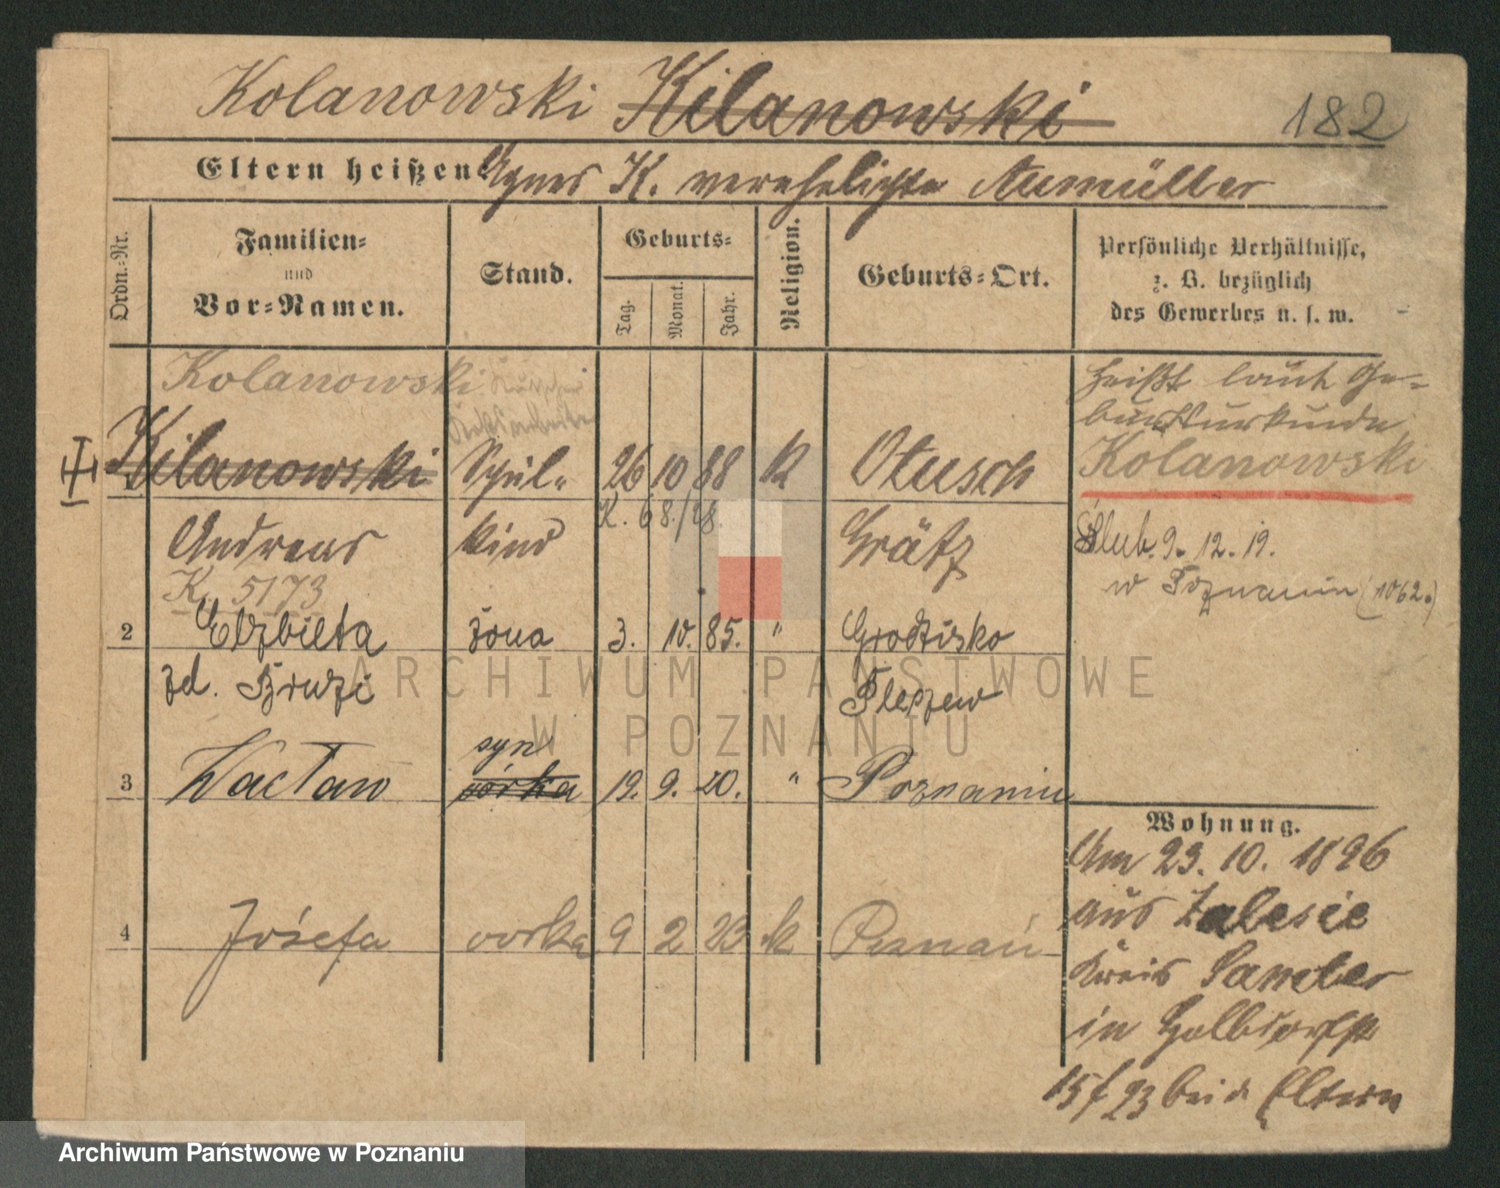 Kolanowski Kilanowski 182
Eltern heißen Agnes K. verehelichte Aumüller
Ordn.-Nr. Familien- und Vor-Namen. Stand. Geburts- Tag. Monat. Jahr. Religion. Geburts-Ort. Persönliche Verhältnisse, z. B. bezüglich des Gewerbes u. s. w.
Kolanowski
heißt laut Ge-
burtsurkunde
Kilanowski Spül- 26 10 88 k Otusch Kolanowski
K. 68./28.
Andreas kind Grätz Ślub. 9. 12. 19.
K. 5173 w Poznaniu (1062.)
2 Elżbieta żona 3. 10. 85. " Grodzisko
zd. Pleszew
syn
3 Wacław córka 19. 9. 20. " Poznaniu
Wohnung.
Am 23. 10. 1896
4 Józefa córka 9 2 23 k Poznań
aus Zalesie
Kreis Samter
in Halbdorfstr
15 f 23 bei d Eltern
ARCHIWUM PAŃSTWOWE
W POZNANIU
Archiwum Państwowe w Poznaniu